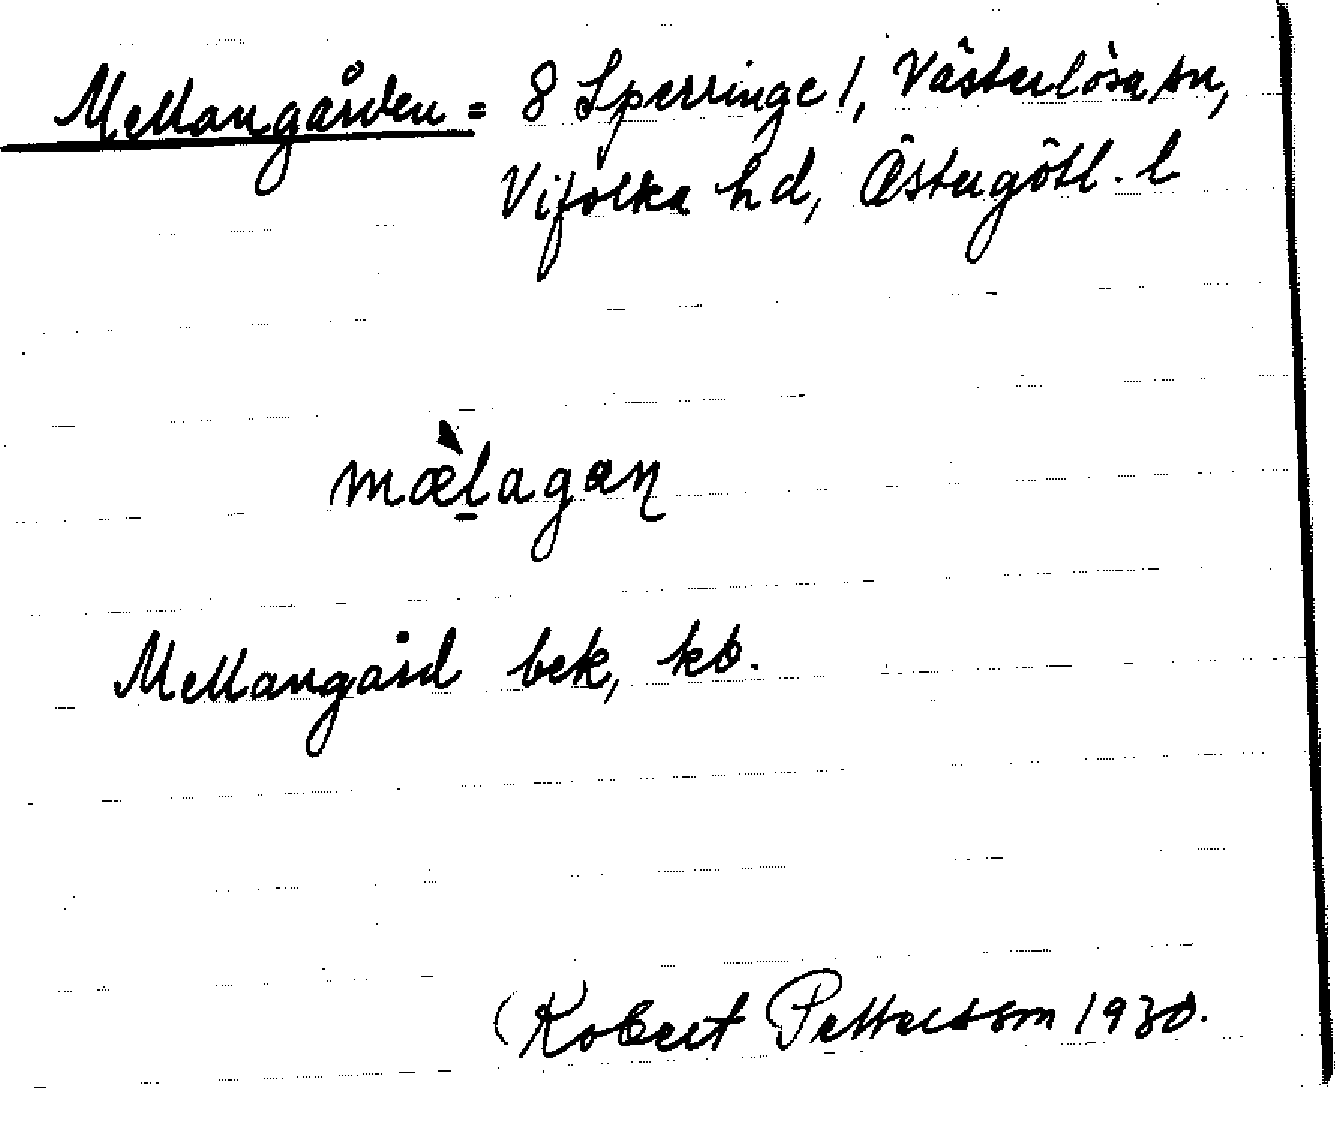 Mellangården = 8 Sperringe 1, Västerlösa sn,
Vifolka hd, Östergötl. l
mæ̀lagaɳ
Mellangård bek, kb.
(Robert Petterson 1930.